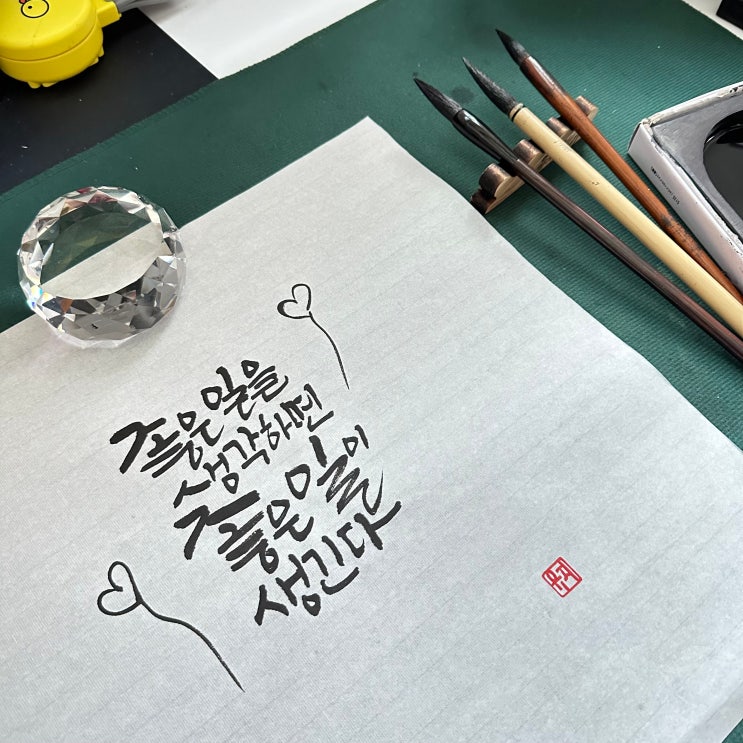 좋은 일을
생각하면
좋은 일이
생긴다